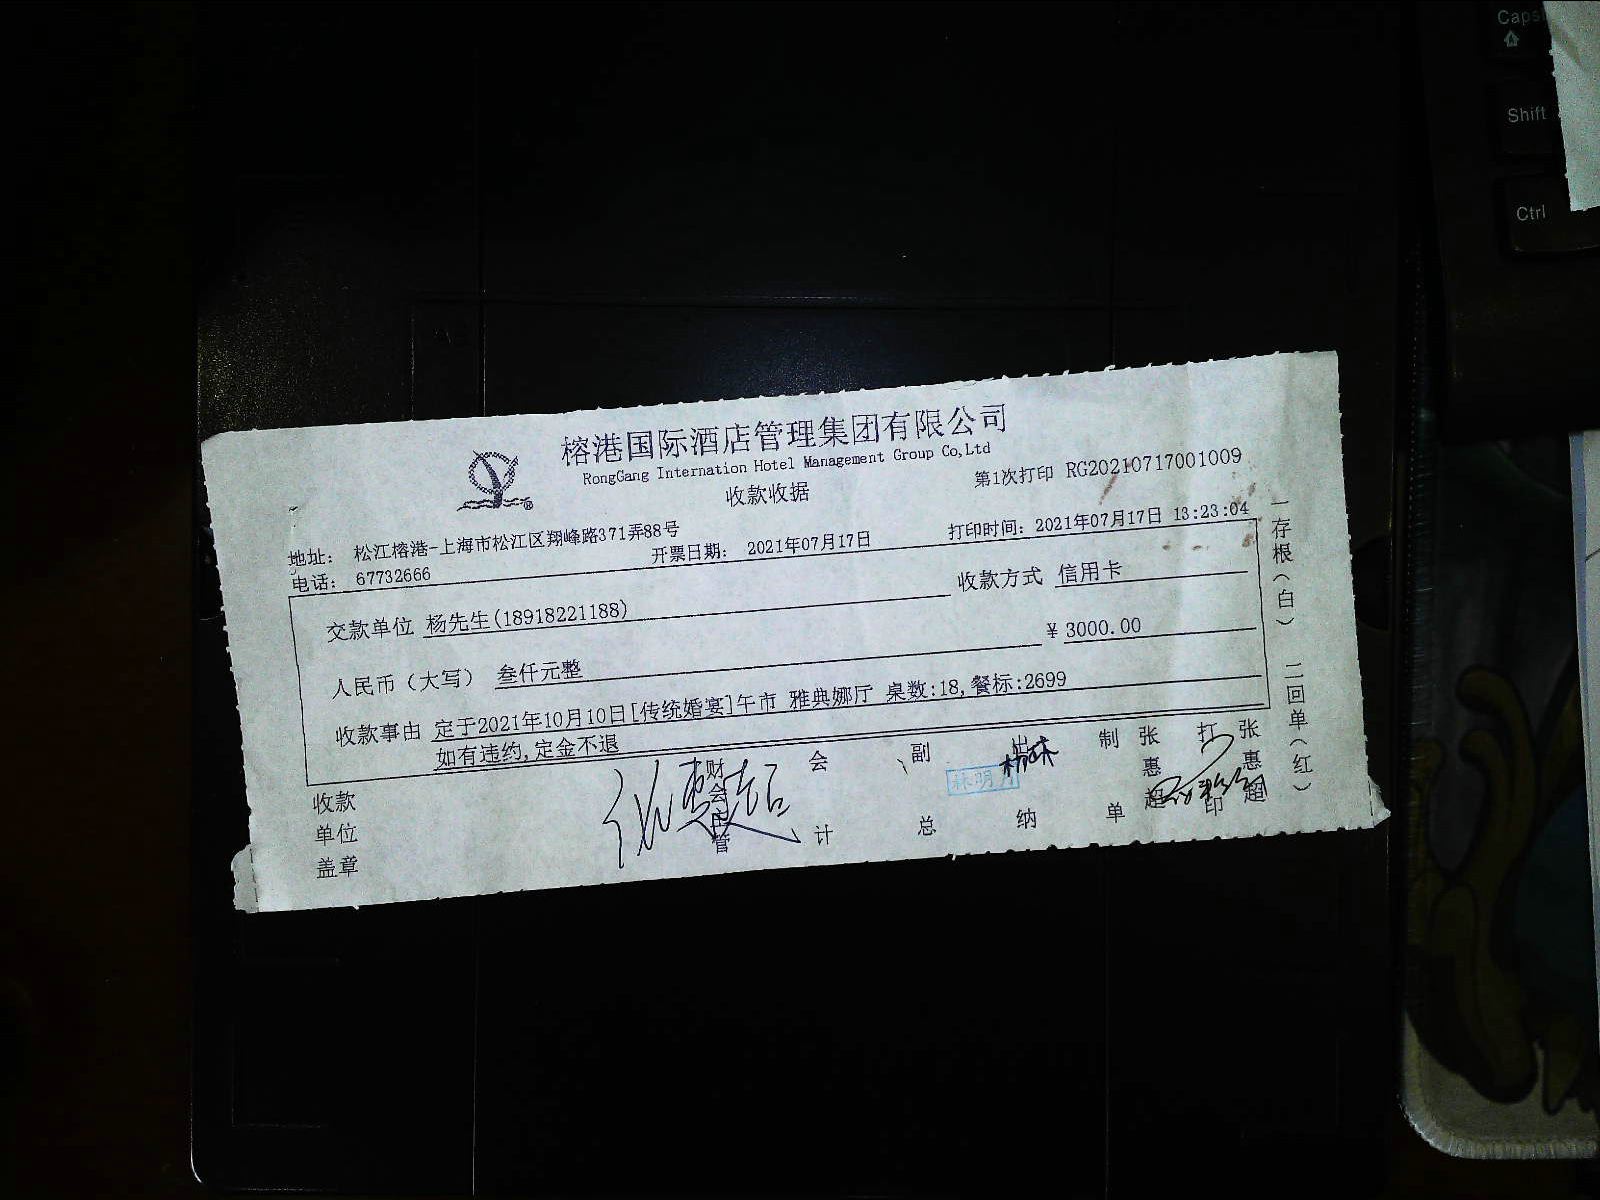 Caps
Shift
Ctrl
榕港国际酒店管理集团有限公司
RongGang Internation Hotel Management Group Co,Ltd
收款收据
第1次打印 RG20210717001009
地址: 松江榕港-上海市松江区翔峰路371弄88号
电话: 67732666
开票日期: 2021年07月17日
打印时间: 2021年07月17日 13:23:04
交款单位 杨先生(18918221188)
收款方式 信用卡
人民币(大写) 叁仟元整
¥ 3000.00
收款事由 定于2021年10月10日[传统婚宴]午市 雅典娜厅 桌数:18,餐标:2699
如有违约,定金不退
收款单位盖章
财会主管
会计
副总
出纳
制单
张惠超
打印
张惠超
一存根(白) 二回单(红)